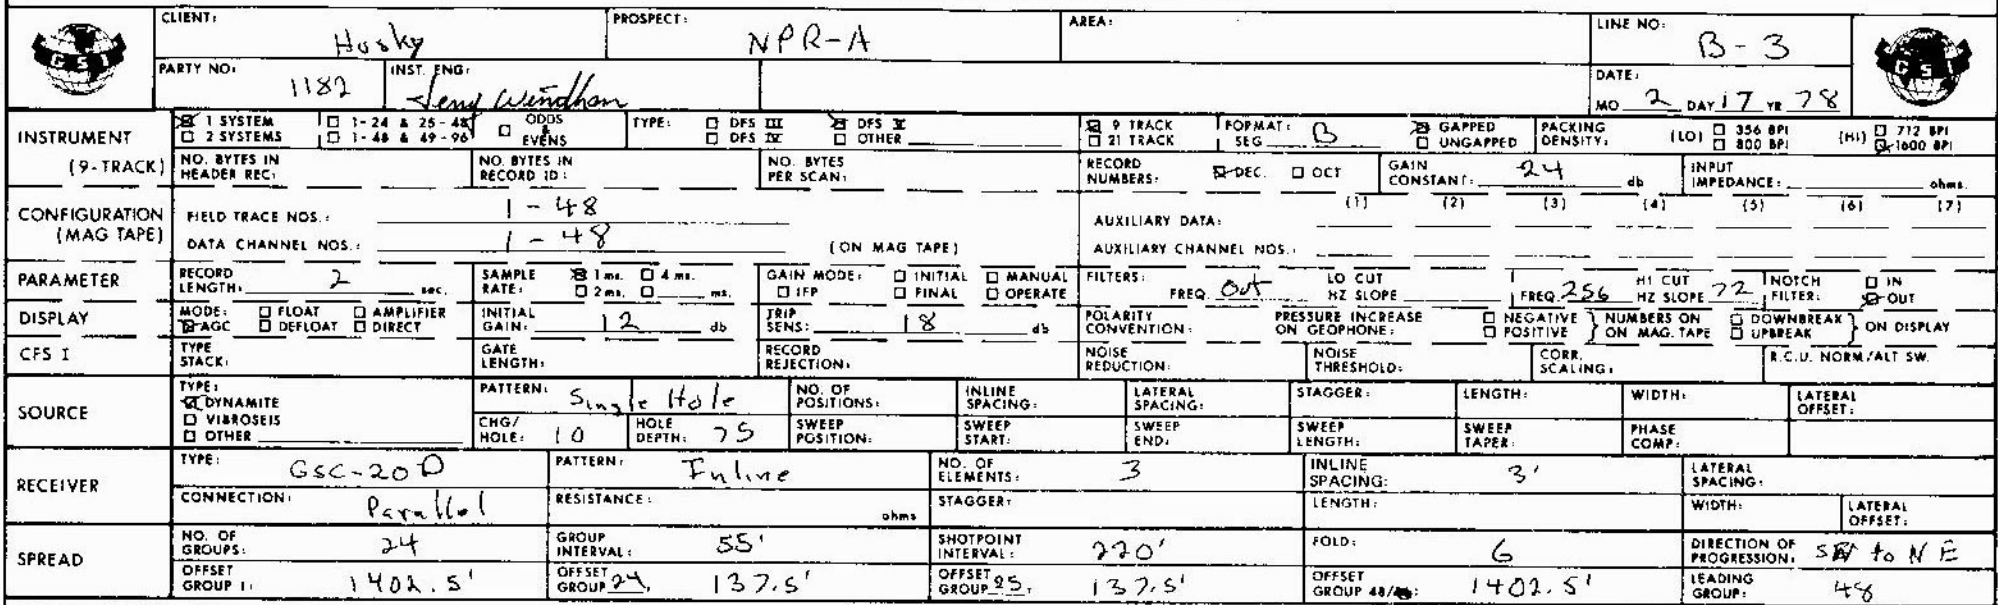 CLIENT: Husky PROSPECT: NPR-A AREA: LINE NO: B-3
GSI GSI
PARTY NO: 1182 INST. ENG: Jerry Windham DATE: MO 2 DAY 17 YR 78
INSTRUMENT (9-TRACK) 1 SYSTEM 1-24 & 25-48 ODDS & EVENS TYPE: DFS III DFS V 9 TRACK FORMAT: SEG B GAPPED PACKING DENSITY: (LO) 356 BPI (HI) 712 BPI
2 SYSTEMS 1-48 & 49-96 DFS IV OTHER 21 TRACK UNGAPPED 800 BPI 1600 BPI
NO. BYTES IN HEADER REC: NO. BYTES IN RECORD ID: NO. BYTES PER SCAN: RECORD NUMBERS: DEC. OCT GAIN CONSTANT: 24 db INPUT IMPEDANCE: ohms.
CONFIGURATION (MAG TAPE) FIELD TRACE NOS.: 1-48 AUXILIARY DATA: (1) (2) (3) (4) (5) (6) (7)
DATA CHANNEL NOS.: 1-48 (ON MAG TAPE) AUXILIARY CHANNEL NOS.:
PARAMETER RECORD LENGTH: 2 sec. SAMPLE RATE: 1 ms. 4 ms. 2 ms. ms. GAIN MODE: INITIAL MANUAL IFP FINAL OPERATE FILTERS: FREQ. Out LO CUT HZ SLOPE FREQ 256 HI CUT HZ SLOPE 72 NOTCH FILTER: IN OUT
DISPLAY MODE: FLOAT AMPLIFIER AGC DEFLOAT DIRECT INITIAL GAIN: 12 db TRIP SENS: 18 db POLARITY CONVENTION: PRESSURE INCREASE ON GEOPHONE: NEGATIVE POSITIVE NUMBERS ON ON MAG. TAPE DOWNBREAK UPBREAK ON DISPLAY
CFS I TYPE STACK: GATE LENGTH: RECORD REJECTION: NOISE REDUCTION: NOISE THRESHOLD: CORR. SCALING: R.C.U. NORM/ALT SW.
SOURCE TYPE: DYNAMITE VIBROSEIS OTHER PATTERN: Single Hole NO. OF POSITIONS: INLINE SPACING: LATERAL SPACING: STAGGER: LENGTH: WIDTH: LATERAL OFFSET:
CHG/HOLE: 10 HOLE DEPTH: 75 SWEEP POSITION: SWEEP START: SWEEP END: SWEEP LENGTH: SWEEP TAPER: PHASE COMP:
RECEIVER TYPE: GSC-20D PATTERN: Inline NO. OF ELEMENTS: 3 INLINE SPACING: 3' LATERAL SPACING:
CONNECTION: Parallel RESISTANCE: ohms STAGGER: LENGTH: WIDTH: LATERAL OFFSET:
SPREAD NO. OF GROUPS: 24 GROUP INTERVAL: 55' SHOTPOINT INTERVAL: 220' FOLD: 6 DIRECTION OF PROGRESSION: SW to NE
OFFSET GROUP 1: 1402.5' OFFSET GROUP 24: 137.5' OFFSET GROUP 25: 137.5' OFFSET GROUP 48/ 1402.5' LEADING GROUP: 48